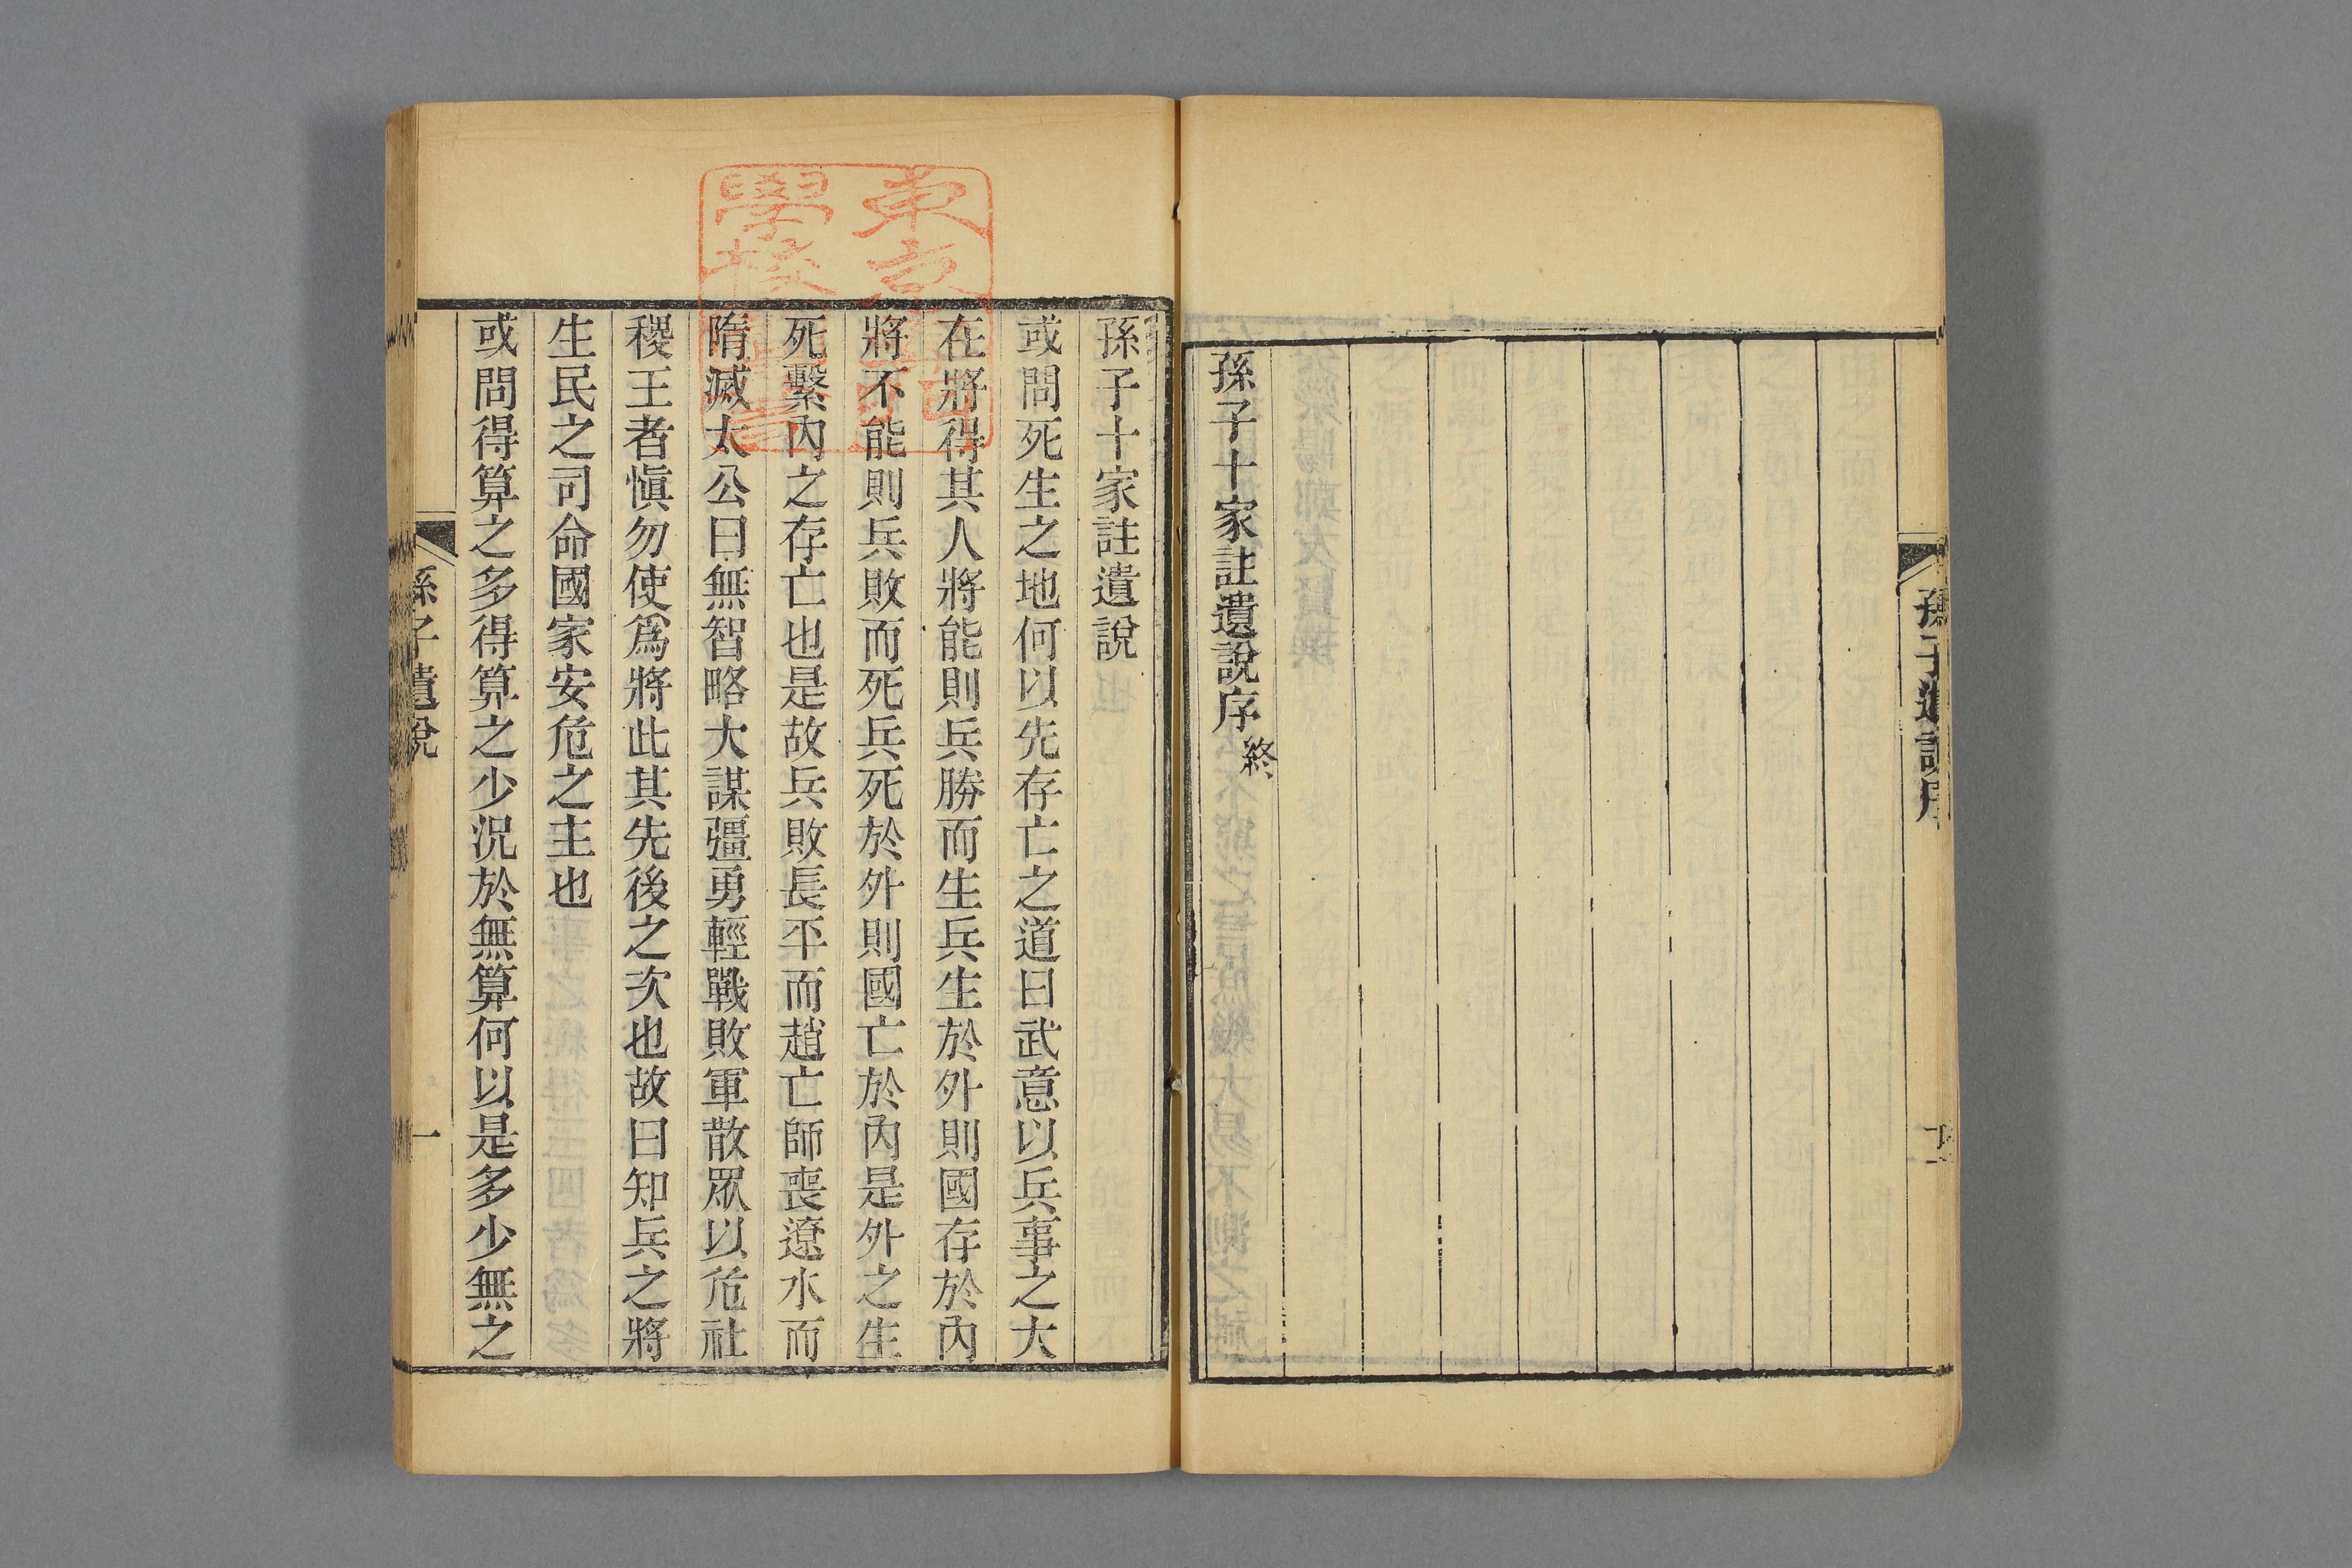 孫子遺說序
孫子十家註遺說序終
孫子十家註遺說
或問死生之地何以先存亡之道曰武意以兵事之大
在將得其人將能則兵勝而生兵生於外則國存於內
將不能則兵敗而死兵死於外則國亡於內是外之生
死繫內之存亡也是故兵敗長平而趙亡師喪遼水而
隋滅太公曰無智略大謀彊勇輕戰敗軍散眾以危社
稷王者慎勿使爲將此其先後之次也故曰知兵之將
生民之司命國家安危之主也
或問得算之多得算之少況於無算何以是多少無之
孫子遺說
一
東京
學校